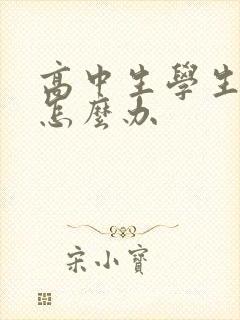 高中生學生
怎麼办
宋小寶